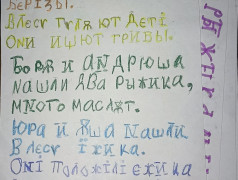 БЕРІЗЫ.
В лесу гуляют деті
Они ищют грибы.
Боря и Андрюша
нашли два рыжика,
много маслят.
Юра и Яша нашли
В лесу їжика.
Оні положілі ежика